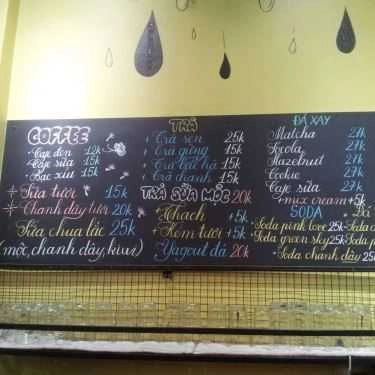 COFFEE
Cafe đen 12k
Cafe sữa 15k
Bạc xỉu 15k
Sữa tươi 15k
Chanh dây tươi 20k
Sữa chua lắc 25k
(mộc, chanh dây, kiwi)
TRÀ
+ Trà sen 25k
+ Trà gừng 15k
+ Trà bá hạ 15k
+ Trà chanh 15k
TRÀ SỮA MỘC 20k
+ Thạch +5k
+ Kem tươi +5k
Yagout đá 20k
ĐÁ XAY
Matcha 27k
Socola 27k
Hazelnut 27k
Cookie 27k
Cafe sữa 27k
+ mix cream +5k
SODA
Soda pink love 25k
Soda green sky 25k
Soda chanh dây 25k